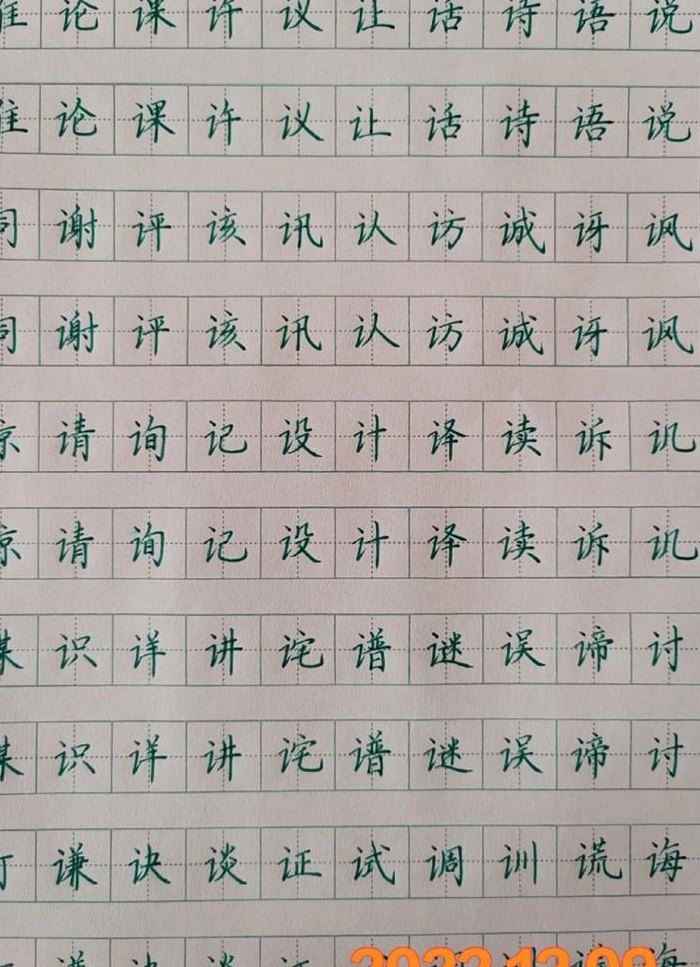 谁论课许议让话诗语说
谁论课许议让话诗语说
词谢评该讯认访诚讶讽
词谢评该讯认访诚讶讽
谅请询记设计译读诉讥
谅请询记设计译读诉讥
谋识详讲诧谱谜误谛讨
谋识详讲诧谱谜误谛讨
订谦诀谈证试调训谎诲
谦诀谈证
2023.12.09